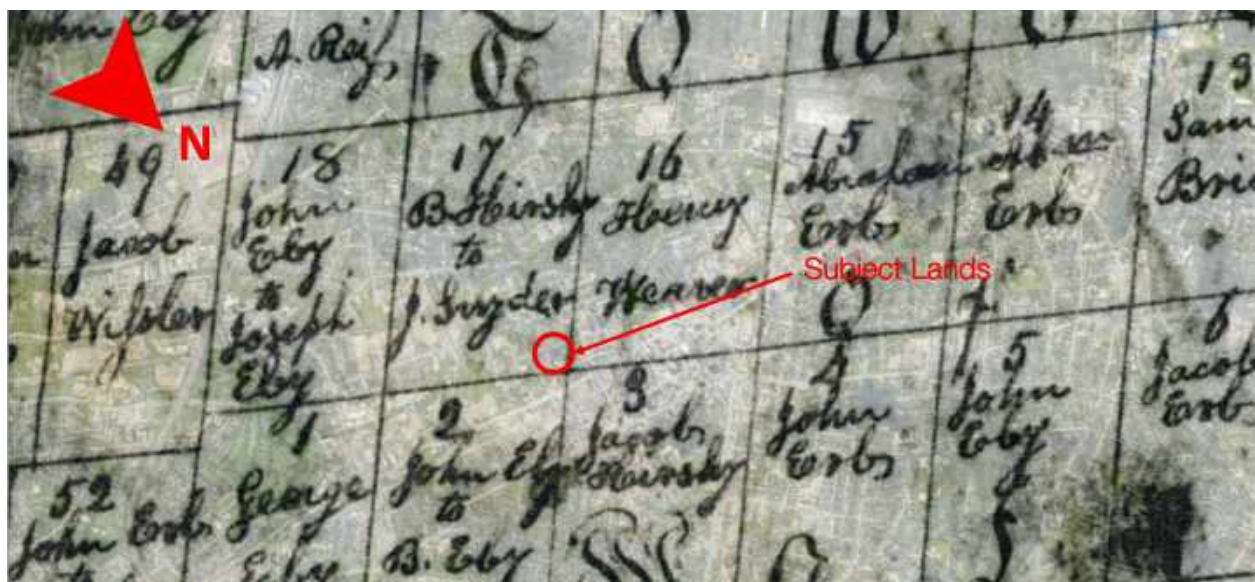 John Eby
A. Reiz
N
49
Jacob
Wissler
18
John
Eby
to
Joseph
Eby
17
B. Hirshy
to
J. Snyder
16
Henry
Weaver
15
Abraham
Erbs
14
Erbs
13
Sam
Bri
Subject Lands
52
John Erbs
to
1
George
Eby
2
John Eby
to
B. Eby
3
Jacob
Hirshy
4
John
Erbs
5
John
Eby
6
Jacob
Erbs